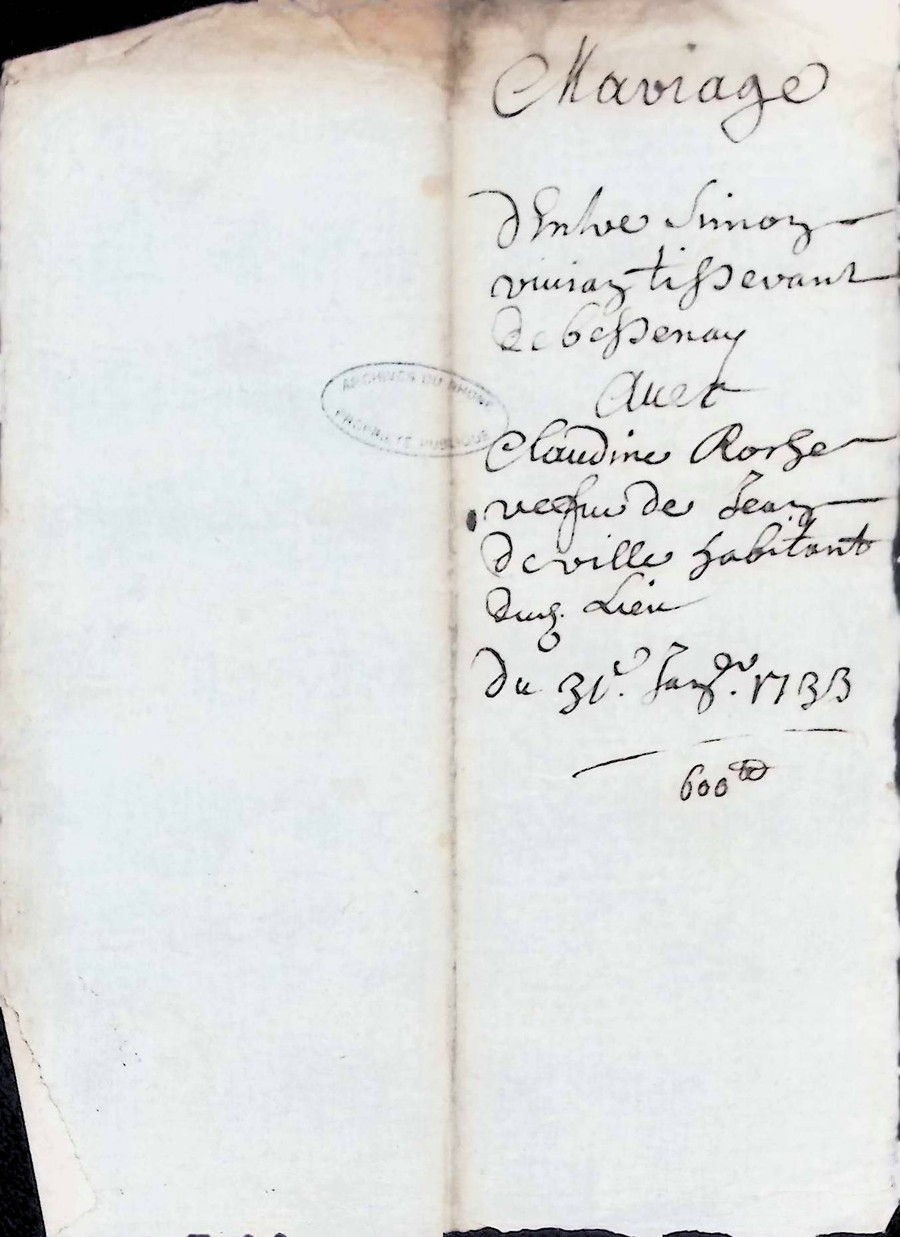 Mariage
d'Entre Simon
viuian tisserant
de bessenay
Auec
Claudine Roche
vefue de Jean
de ville habitant
dud. Lieu
Du 31e. Janer. 1733
600tt
ARCHIVES DU RHONE
PROPRIETE PUBLIQUE